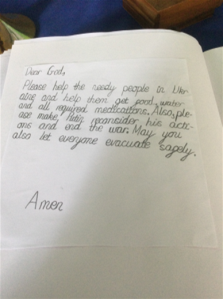 Dear God,
Please help the needy people in Ukr-
aine and help them get food, water
and all required medications. Also, ple-
ase make reconsider his acti-
ons and end the war. May you
also let everyone evacuate safely.
Amen